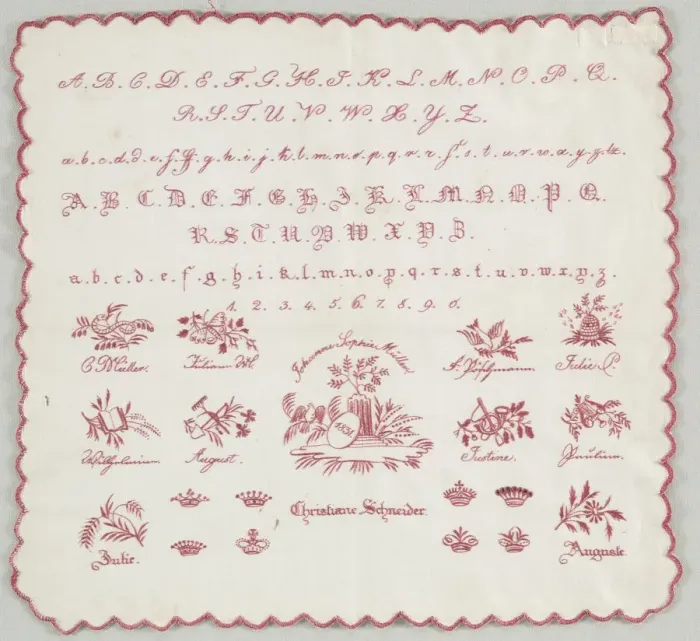 A. B. C. D. E. F. G. H. I. K. L. M. N. O. P. Q.
R. S. T. U. V. W. X. Y. Z.
a. b. c. d. d. e. f. ff. g. h. i. j. k. l. m. n. o. p. q. r. r. s. t. u. v. w. x. y. z. tz.
A. B. C. D. E. F. G. H. I. K. L. M. N. O. P. Q.
R. S. T. U. V. W. X. Y. Z.
a. b. c. d. e. f. g. h. i. k. l. m. n. o. p. q. r. s. t. u. v. w. x. y. z.
1. 2. 3. 4. 5. 6. 7. 8. 9. 0.
Johanne Sophie Müller
C. Müller.
Julie P.
1831
August.
Justine.
Christiane Schneider.
Julie.
Auguste.